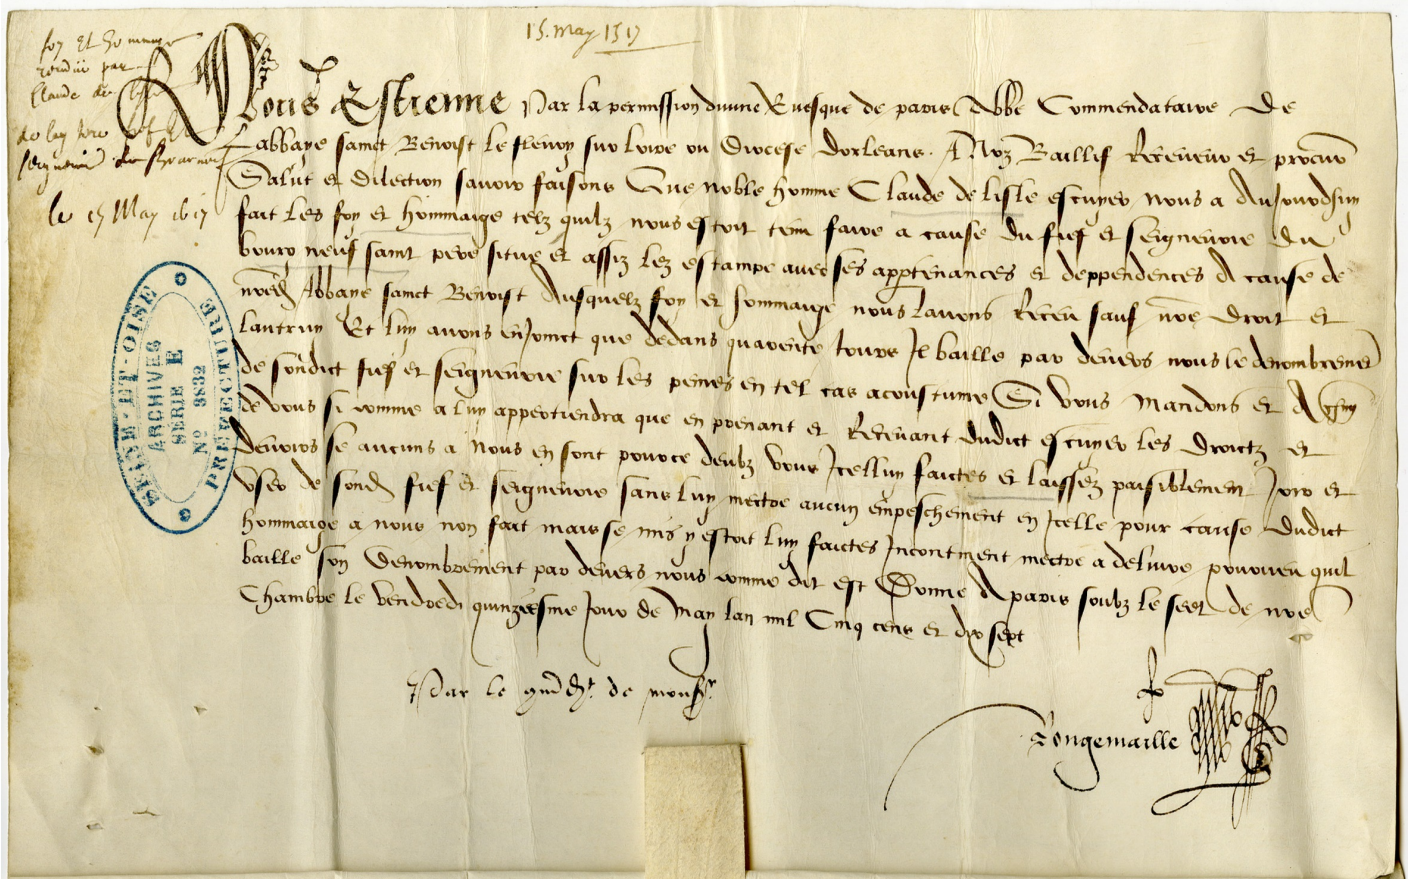 15. May 1517
foy et hommage
rendu par
Claude de lisle
le 15 May 1517
Nous Estienne Par la permission divine Evesque de paris Abbe Commendataire De
Labbaye sainct Benoist le fleury sur loire ou Diocese Dorleans. A Noz Baillif Receveur et procur
Salut et dilection savoir faisons Que noble homme Claude de lisle escuyer nous a Aujourdhuy
fait les foy et hommaige telz quilz nous estoit tenu faire a cause du fief et seigneurie du
bourg neuf saint pere situe et assiz lez estampe avec ses appartenances et deppendences A cause de
nred Abbaye sainct Benoist Ausquelz foy et hommaige nous lavons Receu sauf nre droit et
lautruy Et luy avons enjoinct que dedans quarente jours Il baille par devers nous le denombremet
de sondict fief et seigneurie sur les peines en tel cas acoustume Si vous Mandons et A
de vous si comme a luy appertiendra que en prenant et Recevant dudict escuyer les droictz et
devoirs se aucuns a nous en sont pource deubz vous Icelluy faictes et laissez paisiblement Joir et
user de sond fief et seigneurie sans luy mectre aucun empeschement en Icelle pour cause dudict
hommaige a nous non fait mais se mis y estoit luy faictes Incontinent mectre a delivre pourveu quil
baille son denombrement par devers nous comme dit est Donne A paris soubz le seel de nre
Chambre le vendredi quinziesme Jour de May lan mil Cinq cens et dix sept
Par le de monsr
Longemaille
SEINE-ET-OISE
ARCHIVES
SERIE E
No 3832
PREFECTURE